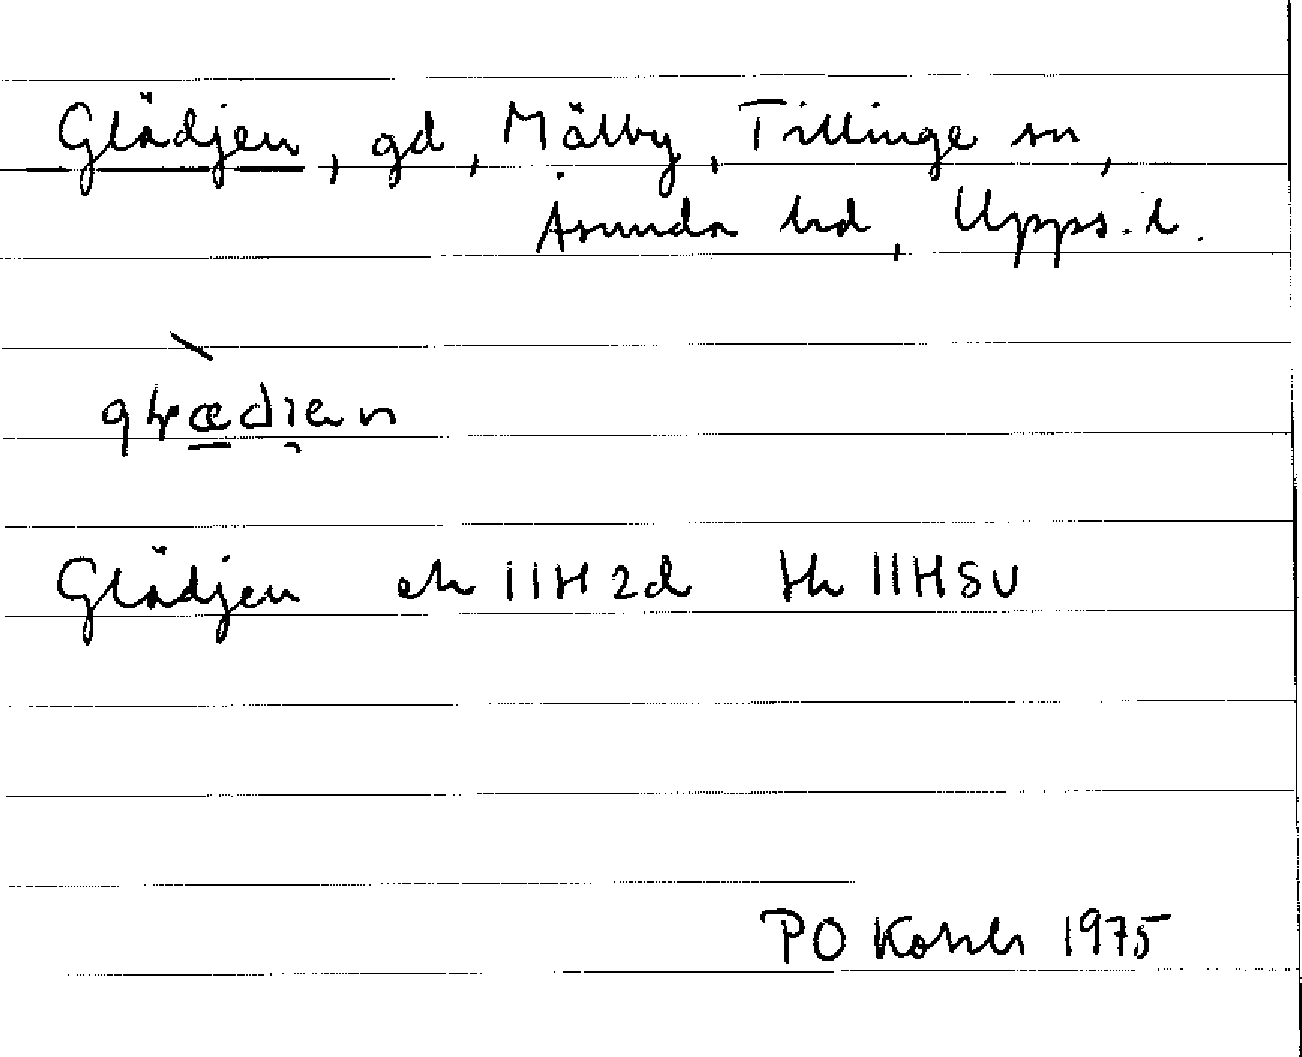 Glädjen, gd, Mälby, Tillinge sn,
Åsunda hd, Upps. l.
Glädjen ek 11H2d tk 11HSV
PO 1975